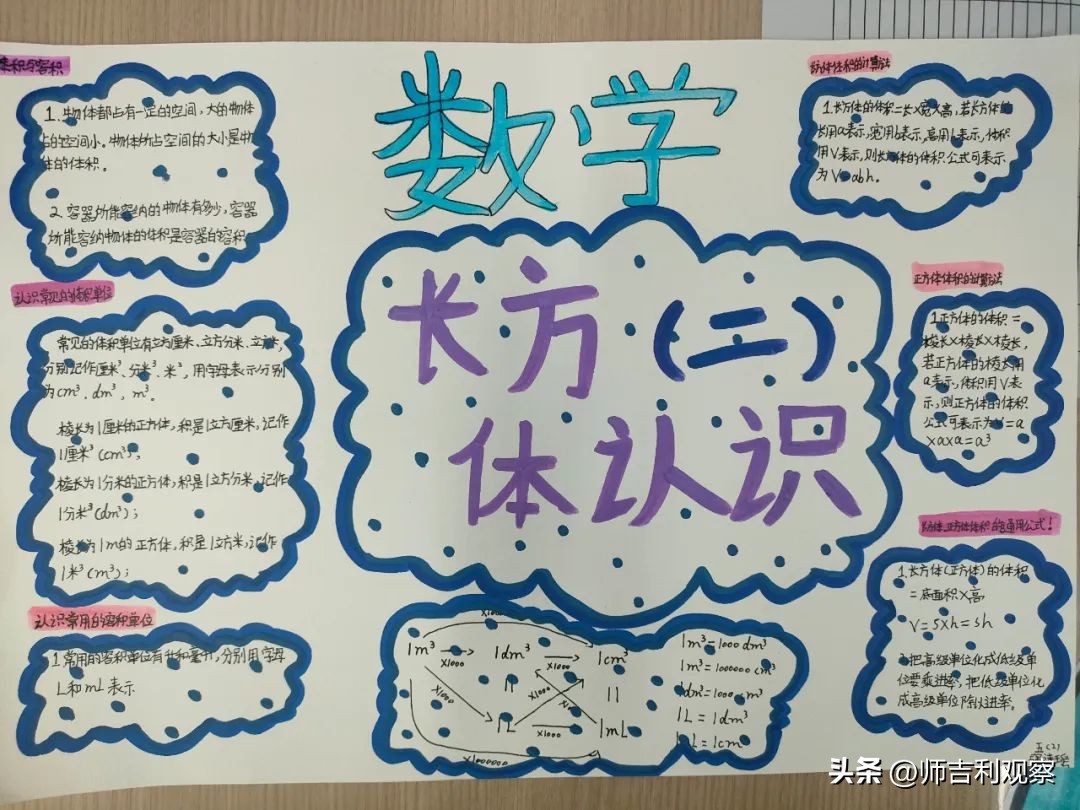 数学
长方（二）
体认识
体积与容积
1.物体都占有一定的空间，大的物体
占的空间小。物体所占空间的大小是物
体的体积。
2.容器所能容纳的物体有多少，容器
所能容纳物体的体积是容器的容积
认识常见的体积单位
常见的体积单位有立方厘米、立方分米、立方米，
分别记作厘米³、分米³、米³，用字母表示分别
为cm³、dm³、m³。
棱长为1厘米的正方体，积是1立方厘米，记作
1厘米³(cm³)；
棱长为1分米的正方体，积是1立方分米，记作
1分米³(dm³)；
棱长为1m的正方体，积是1立方米，记作
1米³(m³)；
认识常用的容积单位
1.常用的容积单位有升和毫升，分别用字母
L和mL表示
X1000
1m³ → 1dm³ → 1cm³
X1000 X1000
X1000 X1000 X1000
1L → 1mL
X1000
X1000000
1m³=1000dm³
1m³=1000000cm³
1dm³=1000cm³
1L=1dm³
1mL=1cm³
方体体积的计算法
1.长方体的体积=长X宽X高，若长方体的
长用a表示，宽用b表示，高用h表示，体积
用V表示，则长方体的体积公式可表示
为V=abh。
正方体体积的计算法
1正方体的体积=
棱长X棱长X棱长，
若正方体的棱长用
a表示，体积用V表
示，则正方体的体积
公式可表示为V=a
XaXa=a³
长方体、正方体体积的通用公式！
1.长方体(正方体)的体积
=底面积X高
V=SXh=Sh
2.把高级单位化成低级单
位要乘进率，把低级单位化
成高级单位除以进率。
五(2)
头条 @师吉利观察